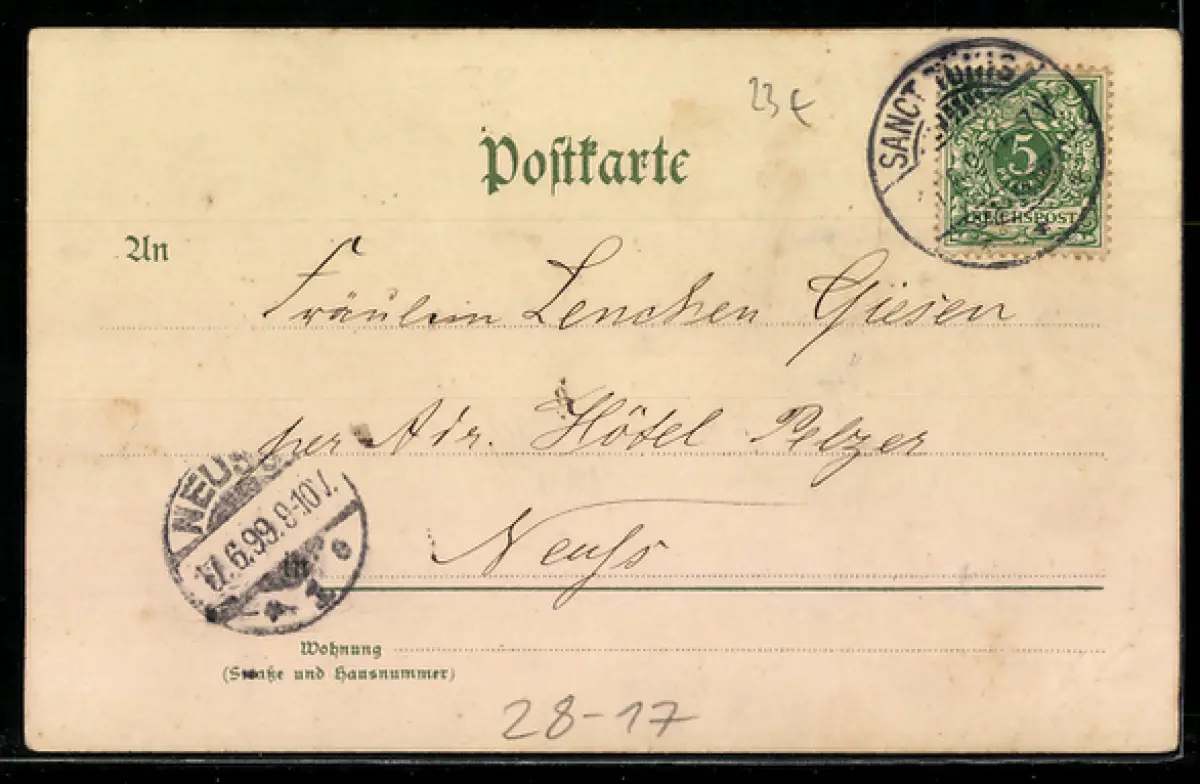 23 €
SANCT TÖNIS
5
REICHSPOST
Postkarte
An
Fräulein Lenchen Giesen
per Adr. Hôtel Pelzer
NEUSS
17.6.99.9-10V.
Neuss
in
Wohnung
(Straße und Hausnummer)
28-17